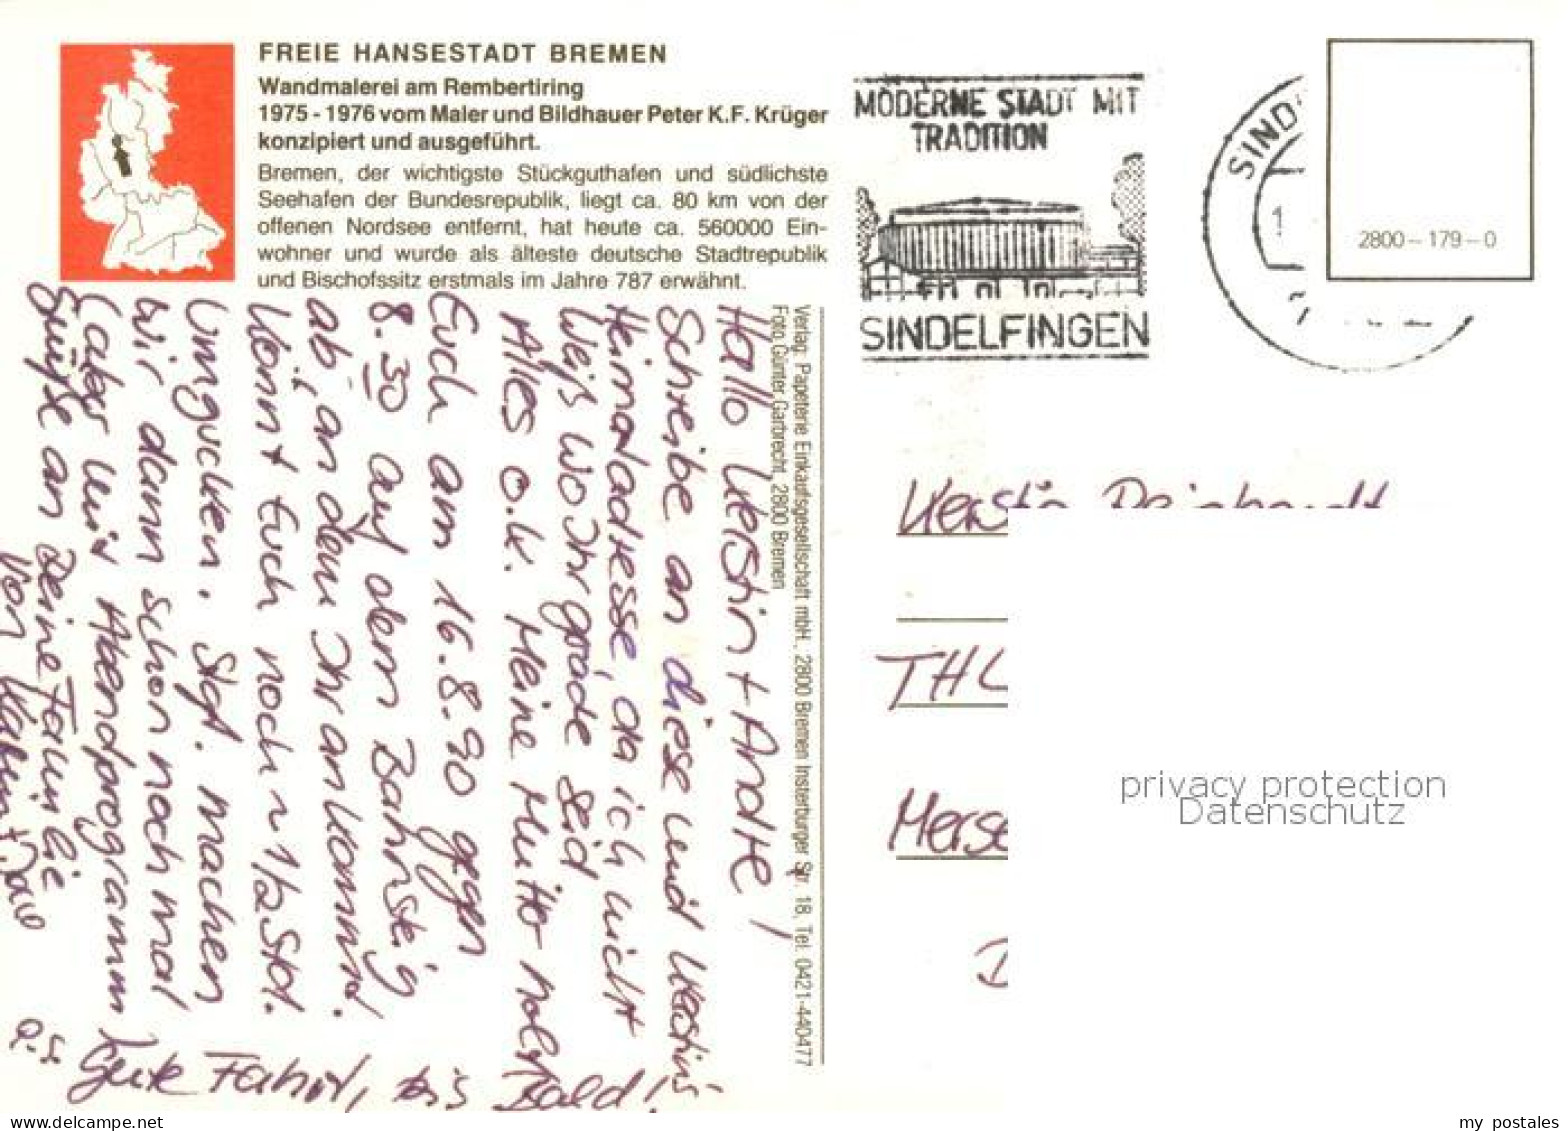 FREIE HANSESTADT BREMEN
Wandmalerei am Rembertiring
1975 - 1976 vom Maler und Bildhauer Peter K.F. Krüger
konzipiert und ausgeführt.
Bremen, der wichtigste Stückguthafen und südlichste
Seehafen der Bundesrepublik, liegt ca. 80 km von der
offenen Nordsee entfernt, hat heute ca. 560000 Ein-
wohner und wurde als älteste deutsche Stadtrepublik
und Bischofssitz erstmals im Jahre 787 erwähnt.
MODERNE STADT MIT
TRADITION
SINDELFINGEN
SIND
1
2800 – 179 – 0
Verlag: Papeterie Einkaufsgesellschaft mbH., 2800 Bremen Insterburger Str. 18, Tel. 0421-440477
Foto Günter Garbrecht, 2800 Bremen
Hallo Kerstin + Andre!
Schreibe an diese und Kerstins
Heimatadresse, da ich nicht
Weiß wo Ihr grade seid
Alles o.k. Meine Mutter holt
Euch am 16.8.90 gegen
8.30 auf dem Bahnsteig
ab, an dem Ihr ankommt.
Könnt Euch noch ~ 1/2 Std.
Umgucken. Stgt. machen
wir dann schon noch mal
(aber mit Abendprogramm
Grüße an Deine Familie
Von
Gute Fahrt, bis Bald!
Kerstin Reinhardt
THL
Merse
D
privacy protection
Datenschutz
www.delcampe.net
my postales